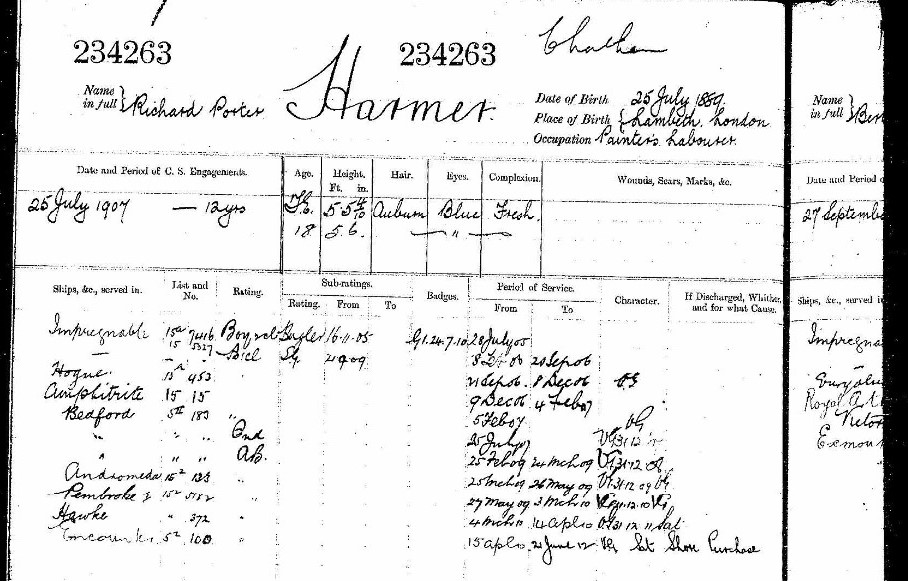 234263
234263
Chatham
Name in full } Richard Porter Harmer.
Date of Birth 25 July 1889.
Place of Birth { Lambeth, London
Occupation Painter's Labourer.
Name in full } Ber
Date and Period of C. S. Engagements. Age. Height. Ft. in. Hair. Eyes. Complexion. Wounds, Scars, Marks, &c.
25 July 1907 — 12 yrs 5 5 Auburn Blue Fresh.
18. 5. 6. — " —
Date and Period o
27 Septembe
Ships, &c., served in. List and No. Rating. Sub-ratings. Rating. From To Badges. Period of Service. From To Character. If Discharged, Whither, and for what Cause.
Ships, &c., served in
Impregnable 15 Boy 16.11.05 G1.24.7.10 July 05
20 Sep 06
Hogue. 15 453 21 Sep 06. 8 Dec 06 VG
Amphitrite 15 15 9 Dec 06 4 Feb 07
Bedford 183 " 5 Feb 07 VG
" " " Ord 25 July 07
" " " AB. 25 Feb 09 24 Mch 09
Andromeda " 25 Mch 09 26 May 09
Pembroke " 27 May 09 3 Mch 10
Hawke " 372 " 4 Mch 10 14 Apl 10
Encounter 100 " 15 Apl 10 21 June 12 VG Shore Purchase
Impregna
Euryalu
Royal
Victor
Exmou